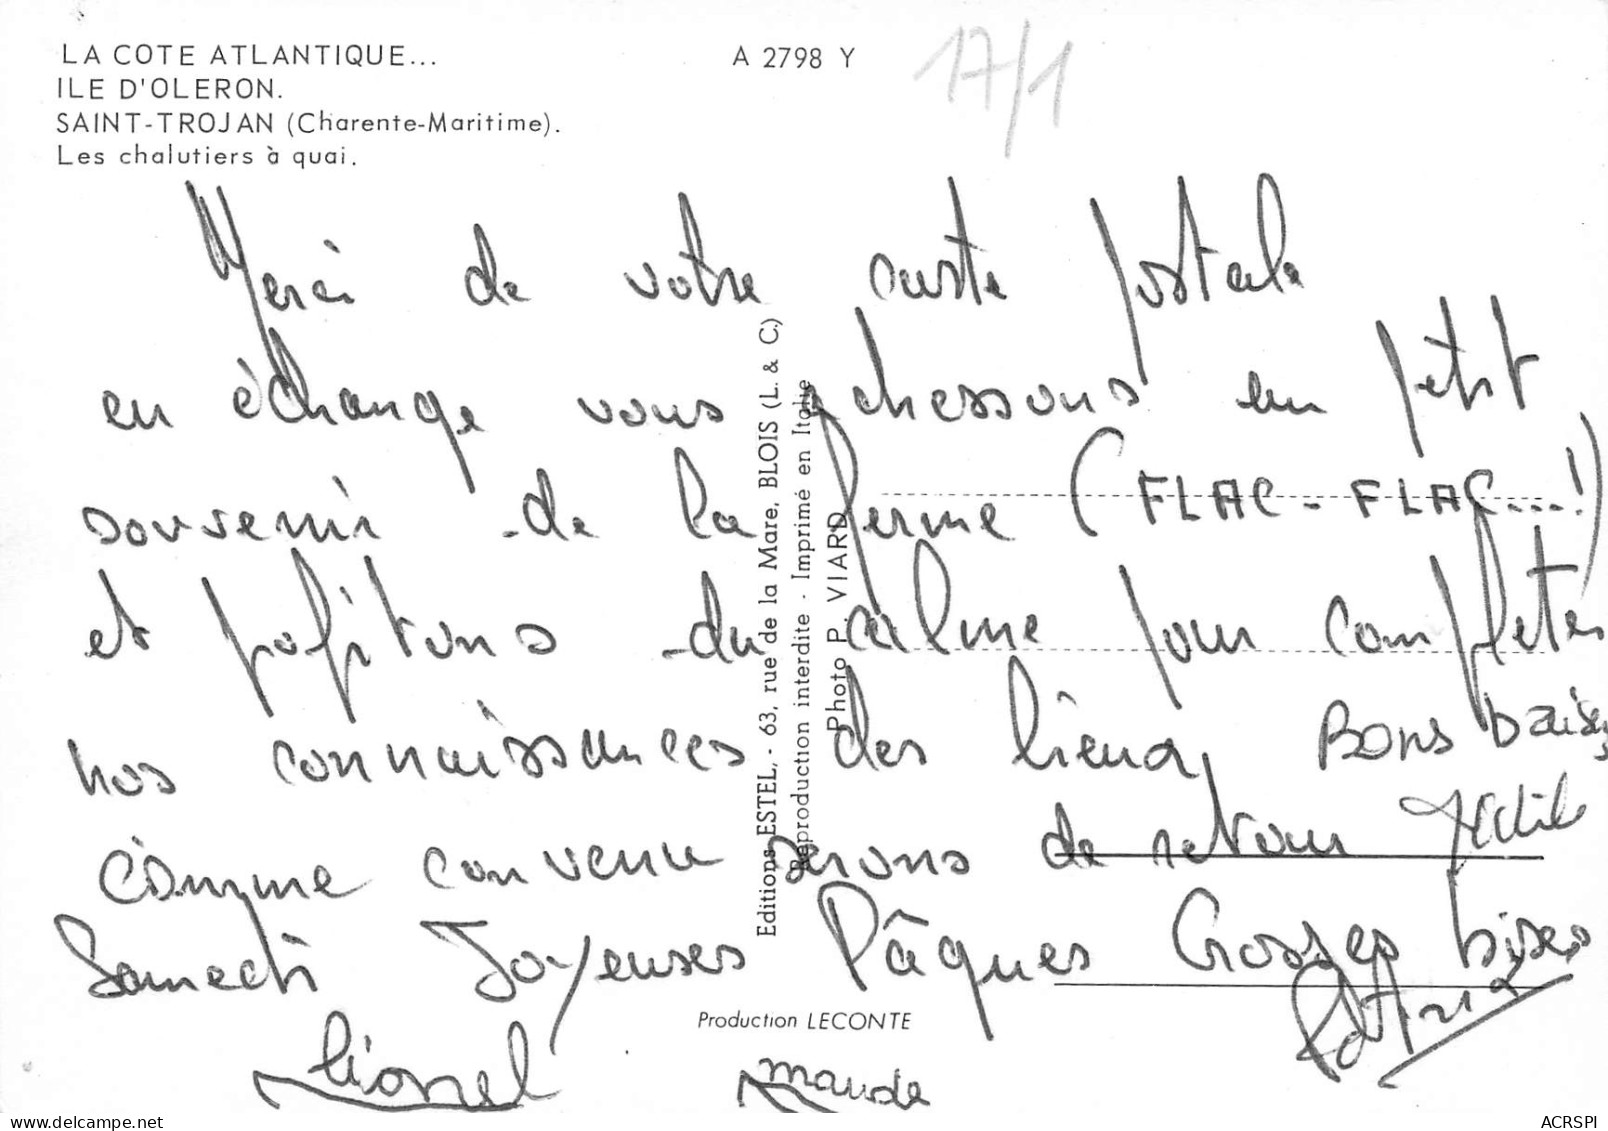 LA COTE ATLANTIQUE...
ILE D'OLERON.
SAINT-TROJAN (Charente-Maritime).
Les chalutiers à quai.
A 2798 Y
17/1
Merci de votre carte postale
en échange vous adressons un petit
souvenir de la ferme (FLAC-FLAC...!)
et profitons du calme pour completer
nos connaissances des lieux,
comme convenu serons de retour
Samedi Joyeuses Pâques Grosses bises
Bons baisers
Lionel
maude
Patricia
Editions ESTEL, - 63, rue de la Mare, BLOIS (L. & C.)
Reproduction interdite - Imprimé en Italie
Photo P. VIARD
Production LECONTE
ACRSPI